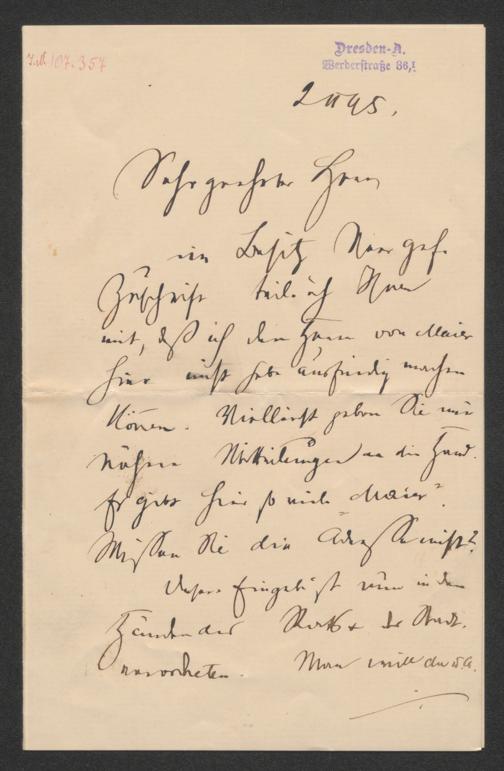 Dresden-A.
Werderstraße 36,I
107.357
2 II 95.
Sehr geehrter Herr
im Besitz Ihrer gefl.
Zuschrift teile ich Ihnen
mit, daß ich den Herrn von Maier
hier nicht habe ausfindig machen
können. Vielleicht geben Sie mir
nähere Mitteilungen an die Hand.
Es giebt hier so viele "Maier".
Wissen Sie die Adresse nicht?
Unsere Eingabe ist nun in den
Händen des Raths & der Stadt-
verordneten. Man will